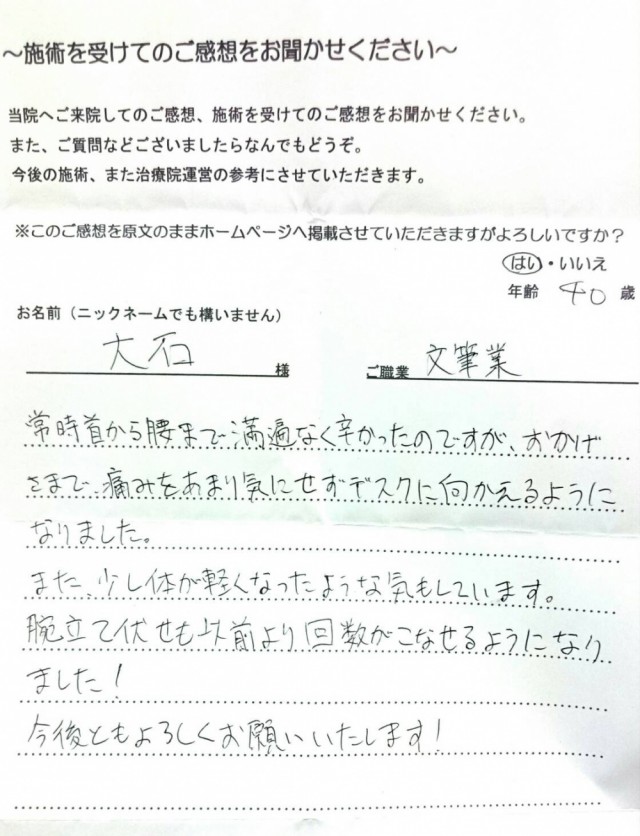 ～施術を受けてのご感想をお聞かせください～
当院へご来院してのご感想、施術を受けてのご感想をお聞かせください。
また、ご質問などございましたらなんでもどうぞ。
今後の施術、また治療院運営の参考にさせていただきます。
※このご感想を原文のままホームページへ掲載させていただきますがよろしいですか？
はい・いいえ
年齢 40 歳
お名前（ニックネームでも構いません）
大石 様 ご職業 文筆業
常時首から腰まで満遍なく辛かったのですが、おかげ
さまで、痛みをあまり気にせずデスクに向かえるように
なりました。
また、少し体が軽くなったような気もしています。
腕立て伏せも以前より回数がこなせるようになり
ました！
今後ともよろしくお願いいたします！